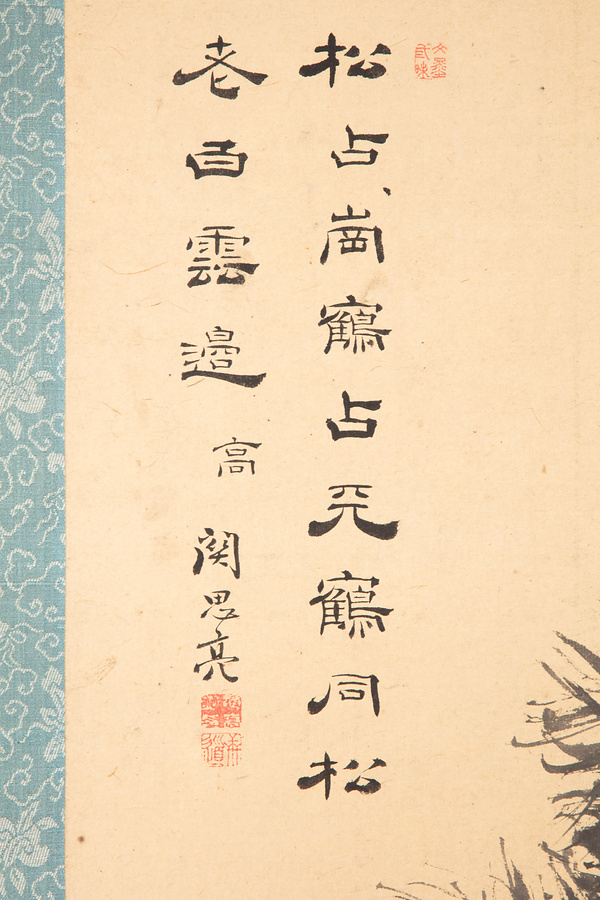 松占、崗鶴占天鶴同松
老白雲邊 高
関思亮